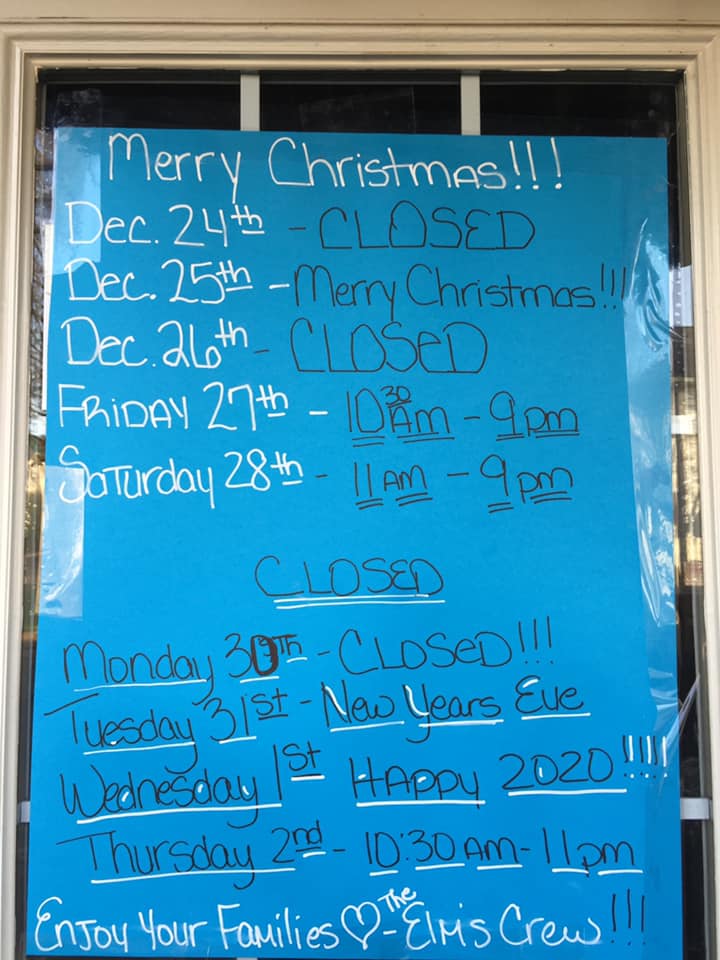 Merry Christmas!!!
Dec. 24th - CLOSED
Dec. 25th - Merry Christmas!!!
Dec. 26th - CLOSED
FRiDAY 27th - 10 30 AM - 9 pm
Saturday 28th - 11 AM - 9 pm
CLOSED
Monday 30TH - CLOSED!!!
Tuesday 31st - New Years Eve
Wednesday 1st HAPPY 2020!!!!!
Thursday 2nd - 10:30 AM - 11pm
Enjoy Your Families ♡ - The Elm's Crew!!!